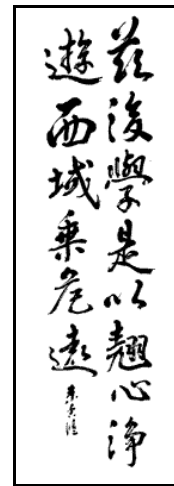 茲後學是以翹心淨
遊西域乗危遠